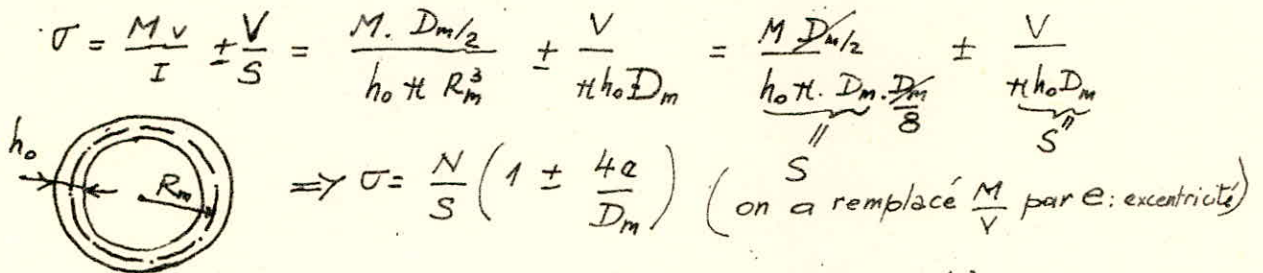 σ = M v / I ± V / S = M. Dm/2 / h₀ π Rm³ ± V / π h₀ Dm = M Dm/2 / h₀ π. Dm . Dm²/8 ± V / π h₀ Dm
S S
h₀
Rm
=> σ = N/S (1 ± 4e/Dm) (on a remplacé M/V par e : excentricité)